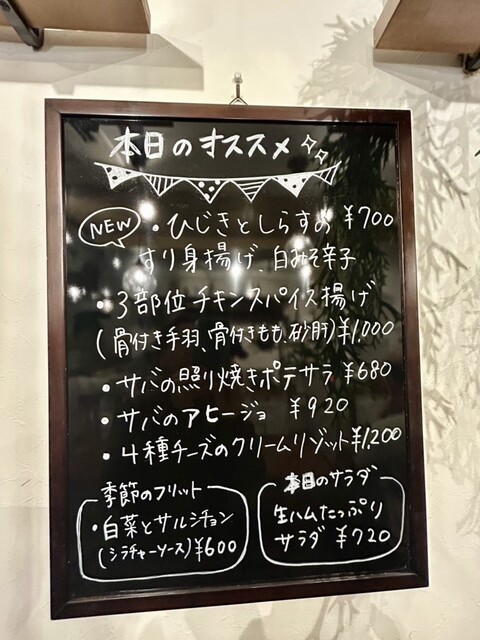 本日のオススメ
NEW ・ひじきとしらすの ¥700
すり身揚げ、白みそ辛子
・3部位チキンスパイス揚げ
(骨付き手羽、骨付きもも、砂肝)¥1,000
・サバの照り焼きポテサラ ¥680
・サバのアヒージョ ¥920
・4種チーズのクリームリゾット¥1,200
季節のフリット
・白菜とサルシチョン
(シラチャーソース)¥600
本日のサラダ
生ハムたっぷり
サラダ ¥720